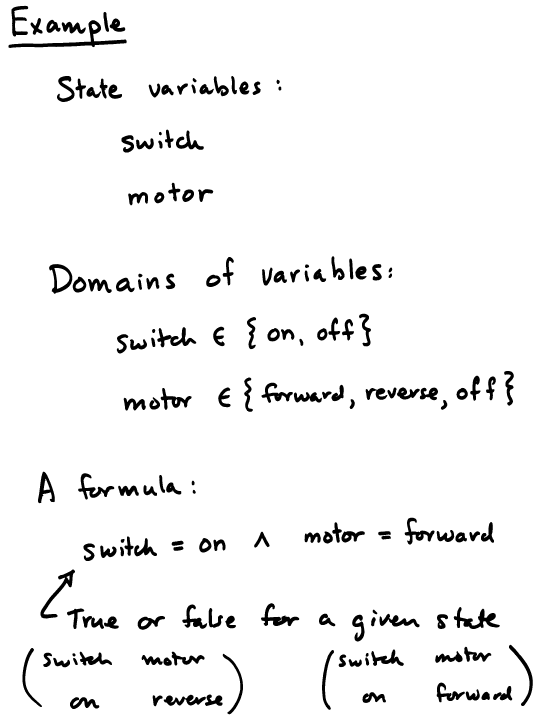 Example
State variables:
switch
motor
Domains of variables:
switch ∈ {on, off}
motor ∈ {forward, reverse, off}
A formula:
switch = on ∧ motor = forward
True or false for a given state
(switch motor (switch motor
on reverse) on forward)